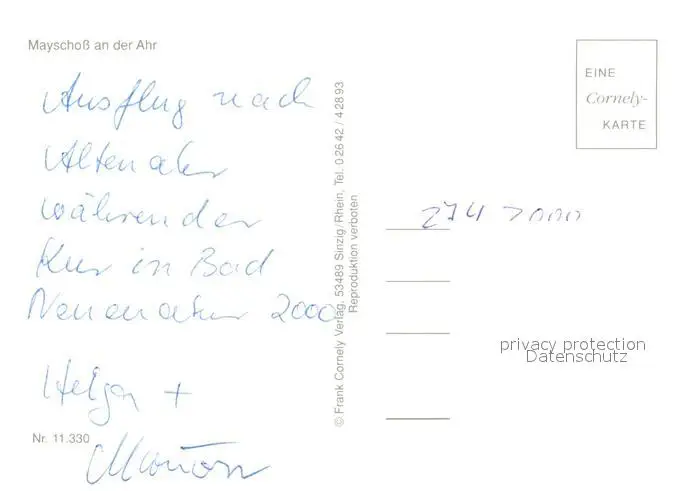 Mayschoß an der Ahr
Ausflug nach
Altenahr
während der
Kur in Bad
Neuenahr 2000
Helga +
Marion
Nr. 11.330
© Frank Cornely Verlag, 53489 Sinzig/Rhein, Tel. 0 26 42 / 4 28 93
Reproduktion verboten
EINE
Cornely-
KARTE
2000
privacy protection
Datenschutz